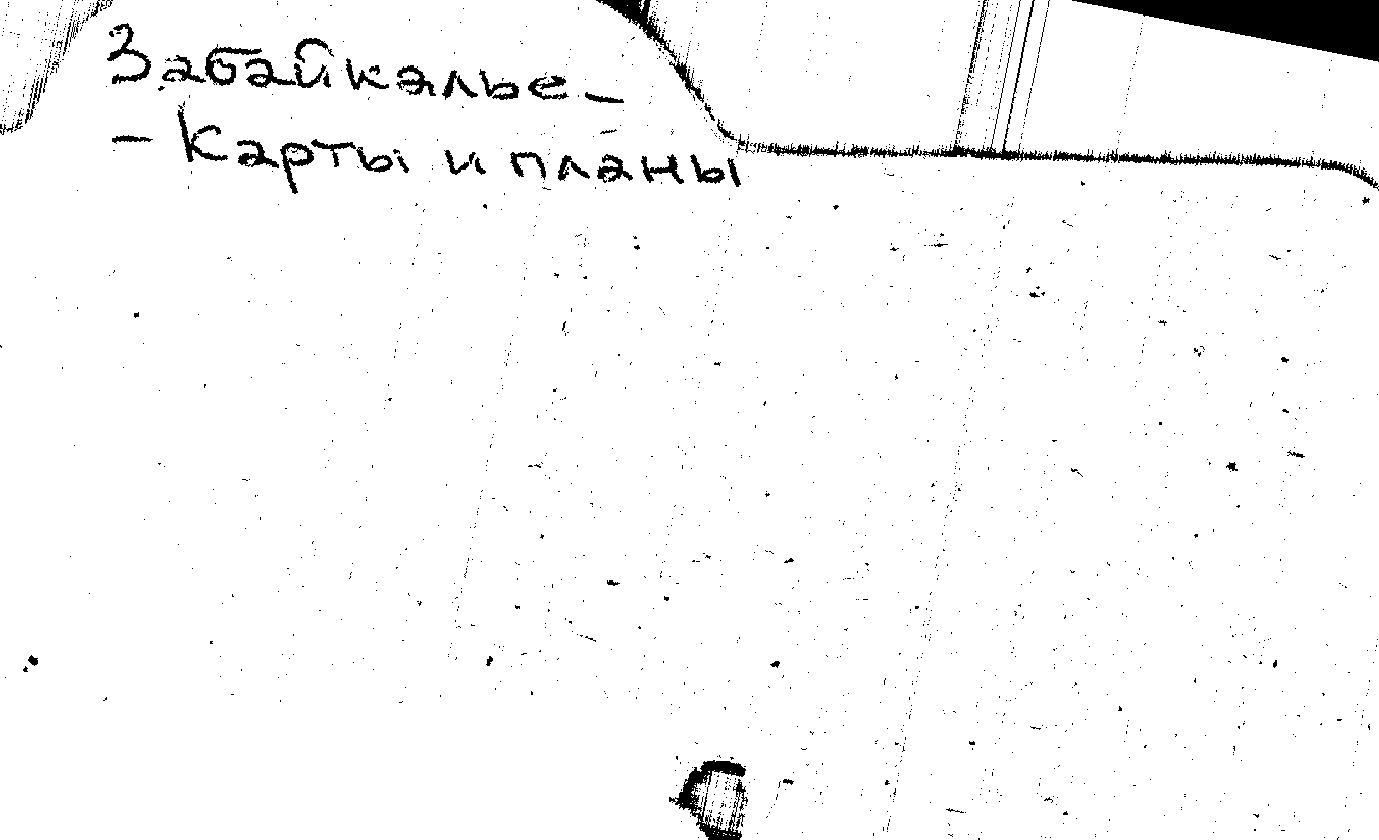 Забайкалье -
- Карты и планы